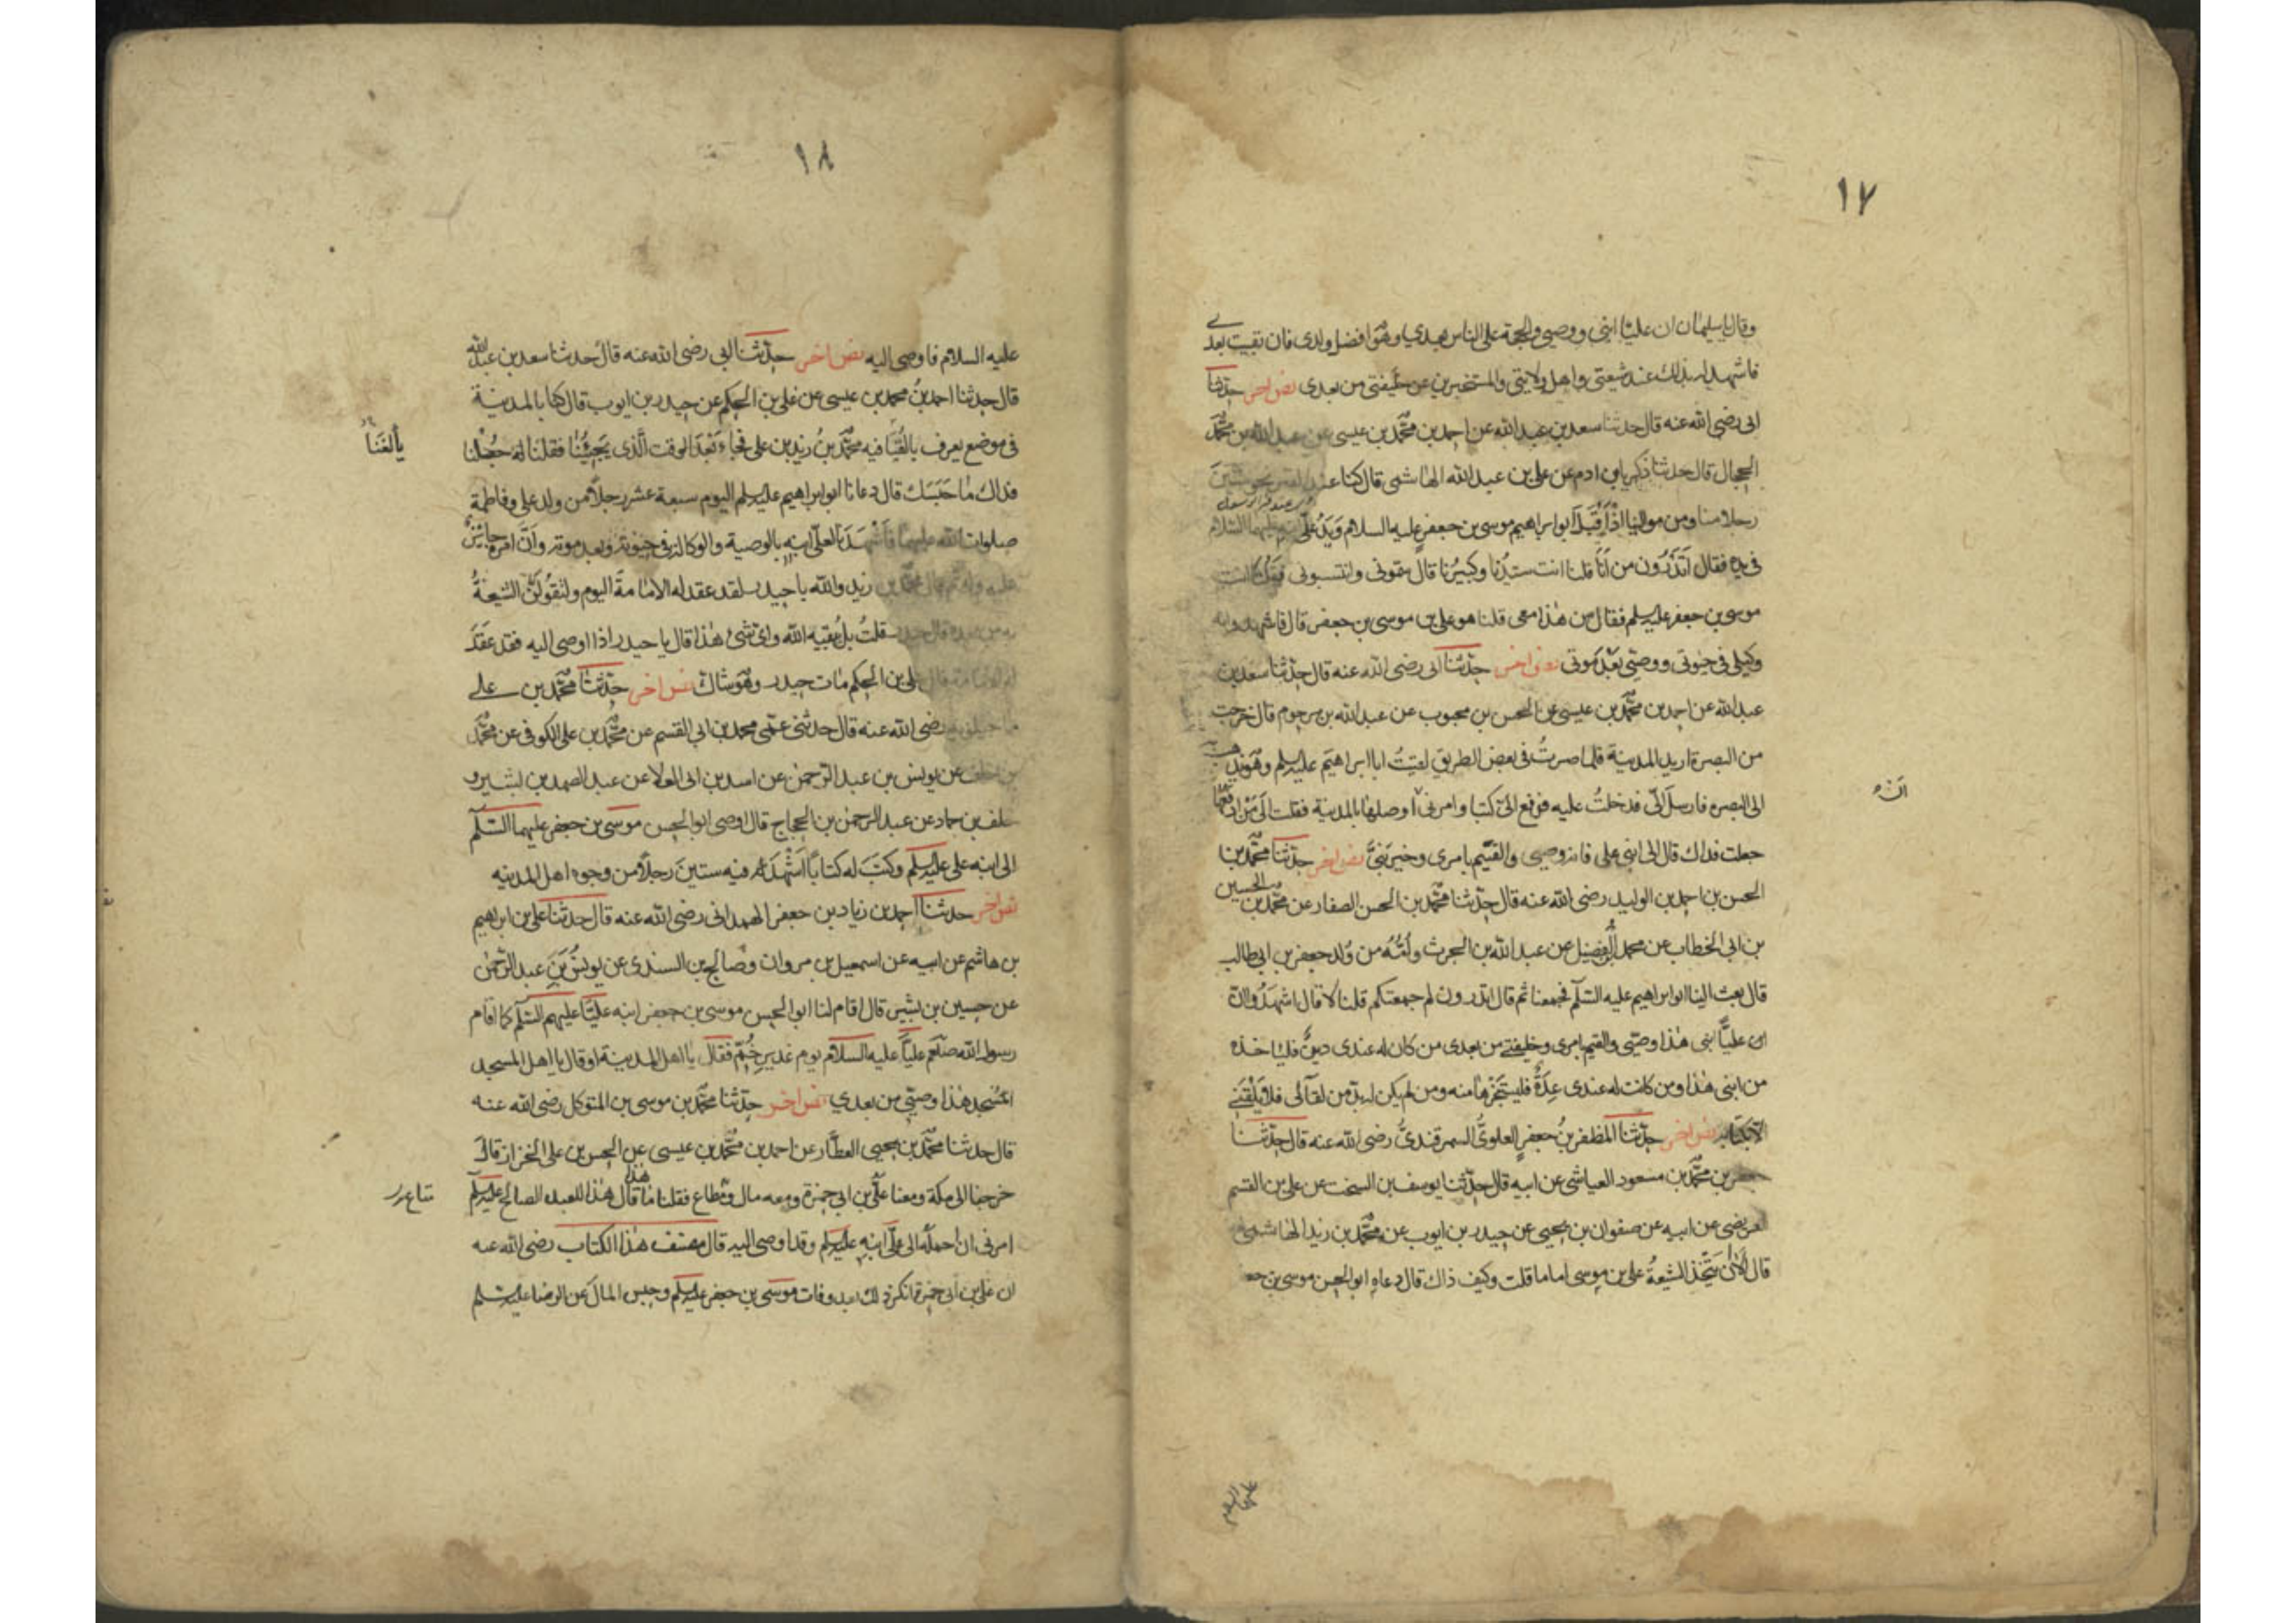 ١٧
وقال يا سليمان ان عليّا ابنى ووصيى والحجة على الناس بعدى وهو افضل ولدى فان بقيت بعدى
فاشهد له بذلك عند شيعتى واهل ولايتى والمستخبرين عن خليفتى من بعدى نص اخر حدثنا
ابى رضى الله عنه قال حدثنا سعد بن عبد الله عن احمد بن محمّد بن عيسى عن عبد الله بن محمّد
الحجال قال حدثنا زكريا بن ادم عن على بن عبد الله الهاشمى قال كنا عند القبر نحو ستين
رجلا منا ومن موالينا اذ اقبل ابو ابراهيم موسى بن جعفر عليه السلام ويد علىّ ابنه عليهما السلام
فى يده فقال اتدرون من انا قلنا انت سيّدنا وكبيرنا قال سمّونى وانسبونى فقلنا انت
موسى بن جعفر عليه السلم فقال من هذا معى قلنا هو على بن موسى بن جعفر قال فاشهدوا انه
وكيلى فى حيوتى ووصيّى بعد موتى نص اخر حدّثنا ابى رضى الله عنه قال حدّثنا سعد بن
عبد الله عن احمد بن محمّد بن عيسى عن الحسن بن محبوب عن عبد الله بن مرحوم قال خرجت
من البصرة اريد المدينة فلما صرتُ فى بعض الطريق لقيتُ ابا ابراهيم عليه السلم وهو يذهب به
الى البصره فارسل الىّ فدخلتُ عليه فدفع الىّ كتبا وامرنى ان اوصلها بالمدينة فقلت الى من ادفعها
جعلت فداك قال الى ابنى على فانه وصيى والقيّم بامرى وخير بنىّ نص اخر حدّثنا محمّد بن
الحسن بن احمد بن الوليد رضى الله عنه قال حدّثنا محمّد بن الحسن الصفار عن محمّد بن الحسين
بن ابى الخطاب عن محمد بن الفضيل عن عبد الله بن الحرث وامّه من ولد جعفر بن ابى طالب
قال بعث الينا ابو ابراهيم عليه السّلم فجمعنا ثم قال اتدرون لم جمعتكم قلنا لا قال اشهدوا انّ
ان عليّا ابنى هذا وصيّى والقيم بامرى وخليفتى من بعدى من كان له عندى دينٌ فلياخذه
من ابنى هذا ومن كانت له عندى عِدَةٌ فليستنجزها منه ومن لم يكن له بدّ من لقآئى فلا يلقنى
الا بكتابه نص اخر حدّثنا المظفر بن جعفر العلوىّ السمرقندىّ رضى الله عنه قال حدّثنا
جعفر بن محمّد بن مسعود العياشى عن ابيه قال حدّثنا يوسف بن السخت عن على بن القسم
العريضى عن ابيه عن صفوان بن يحيى عن حيدر بن ايوب عن محمّد بن زيد الهاشمى انه
قال الان تتّخذ الشيعةُ على بن موسى اماما قلت وكيف ذاك قال دعاه ابو الحسن موسى بن جعفر
انّه
عليه السلام
١٨
عليه السلام فاوصى اليه نص اخر حدّثنا ابى رضى الله عنه قال حدثنا سعد بن عبد الله
قال حدثنا احمد بن محمد بن عيسى عن على بن الحكم عن حيدر بن ايوب قال كنا بالمدينة
فى موضع يعرف بالقُبَا فيه محمّد بن زيد بن على فجاء بعد الوقت الّذى يجيئنا فقلنا له جعلنا
فداك ما حبسك قال دعانا ابو ابراهيم عليه السلم اليوم سبعة عشر رجلا من ولد على وفاطمة
صلوات الله عليهما فاشهدنا لعلىّ ابنه بالوصية والوكالة فى حيوته وبعد موته وانّ امره جائز
عليه وله ثم قال محمّد بن زيد والله يا حيدر لقد عقد له الامامة اليوم ولتقولَنّ الشيعةُ
به من بعده قال حيدر قلتُ بل يبقيه الله واىّ شئ هذا قال يا حيدر اذا اوصى اليه فقد عقد
له الامامة قال على بن الحكم مات حيدر وهو شاكّ نص اخر حدّثنا محمّد بن على
ماجيلويه رضى الله عنه قال حدثنى عمّى محمد بن ابى القسم عن محمّد بن على الكوفى عن محمّد
بن خلف عن يونس بن عبد الرّحمن عن اسد بن ابى العلا عن عبد الصمد بن بشير و
خلف بن حماد عن عبد الرحمن بن الحجاج قال اوصى ابو الحسن موسى بن جعفر عليهما السّلم
الى ابنه على عليه السلم وكتب له كتابا اشهد فيه ستين رجلا من وجوه اهل المدينه
نص اخر حدثنا احمد بن زياد بن جعفر الهمدانى رضى الله عنه قال حدثنا على بن ابرهيم
بن هاشم عن ابيه عن اسمعيل بن مروان وصالح بن السندى عن يونس بن عبد الرّحمن
عن حسين بن بشير قال اقام لنا ابو الحسن موسى بن جعفر ابنه عليّا عليهم السّلم كما اقام
رسول الله صلعم عليّا عليه السلام يوم غدير خُمّ فقال يا اهل المدينة او قال يا اهل المسجد
هذا وصيّى من بعدى نص اخر حدّثنا محمّد بن موسى بن المتوكل رضى الله عنه
قال حدثنا محمّد بن يحيى العطّار عن احمد بن محمّد بن عيسى عن الحسن بن على الخزاز قال
خرجنا الى مكة ومعنا علىّ بن ابى حمزة ومعه مال ومتاع فقلنا ما هذا قال هذا للعبد الصالح عليه السلم
امرنى ان احمله الى علىّ ابنه عليه السلم وقد اوصى اليه قال مصنف هذا الكتاب رضى الله عنه
ان على بن ابى حمزة انكر ذلك بعد وفات موسى بن جعفر عليه السلم وحبس المال عن الرضا عليه السلم